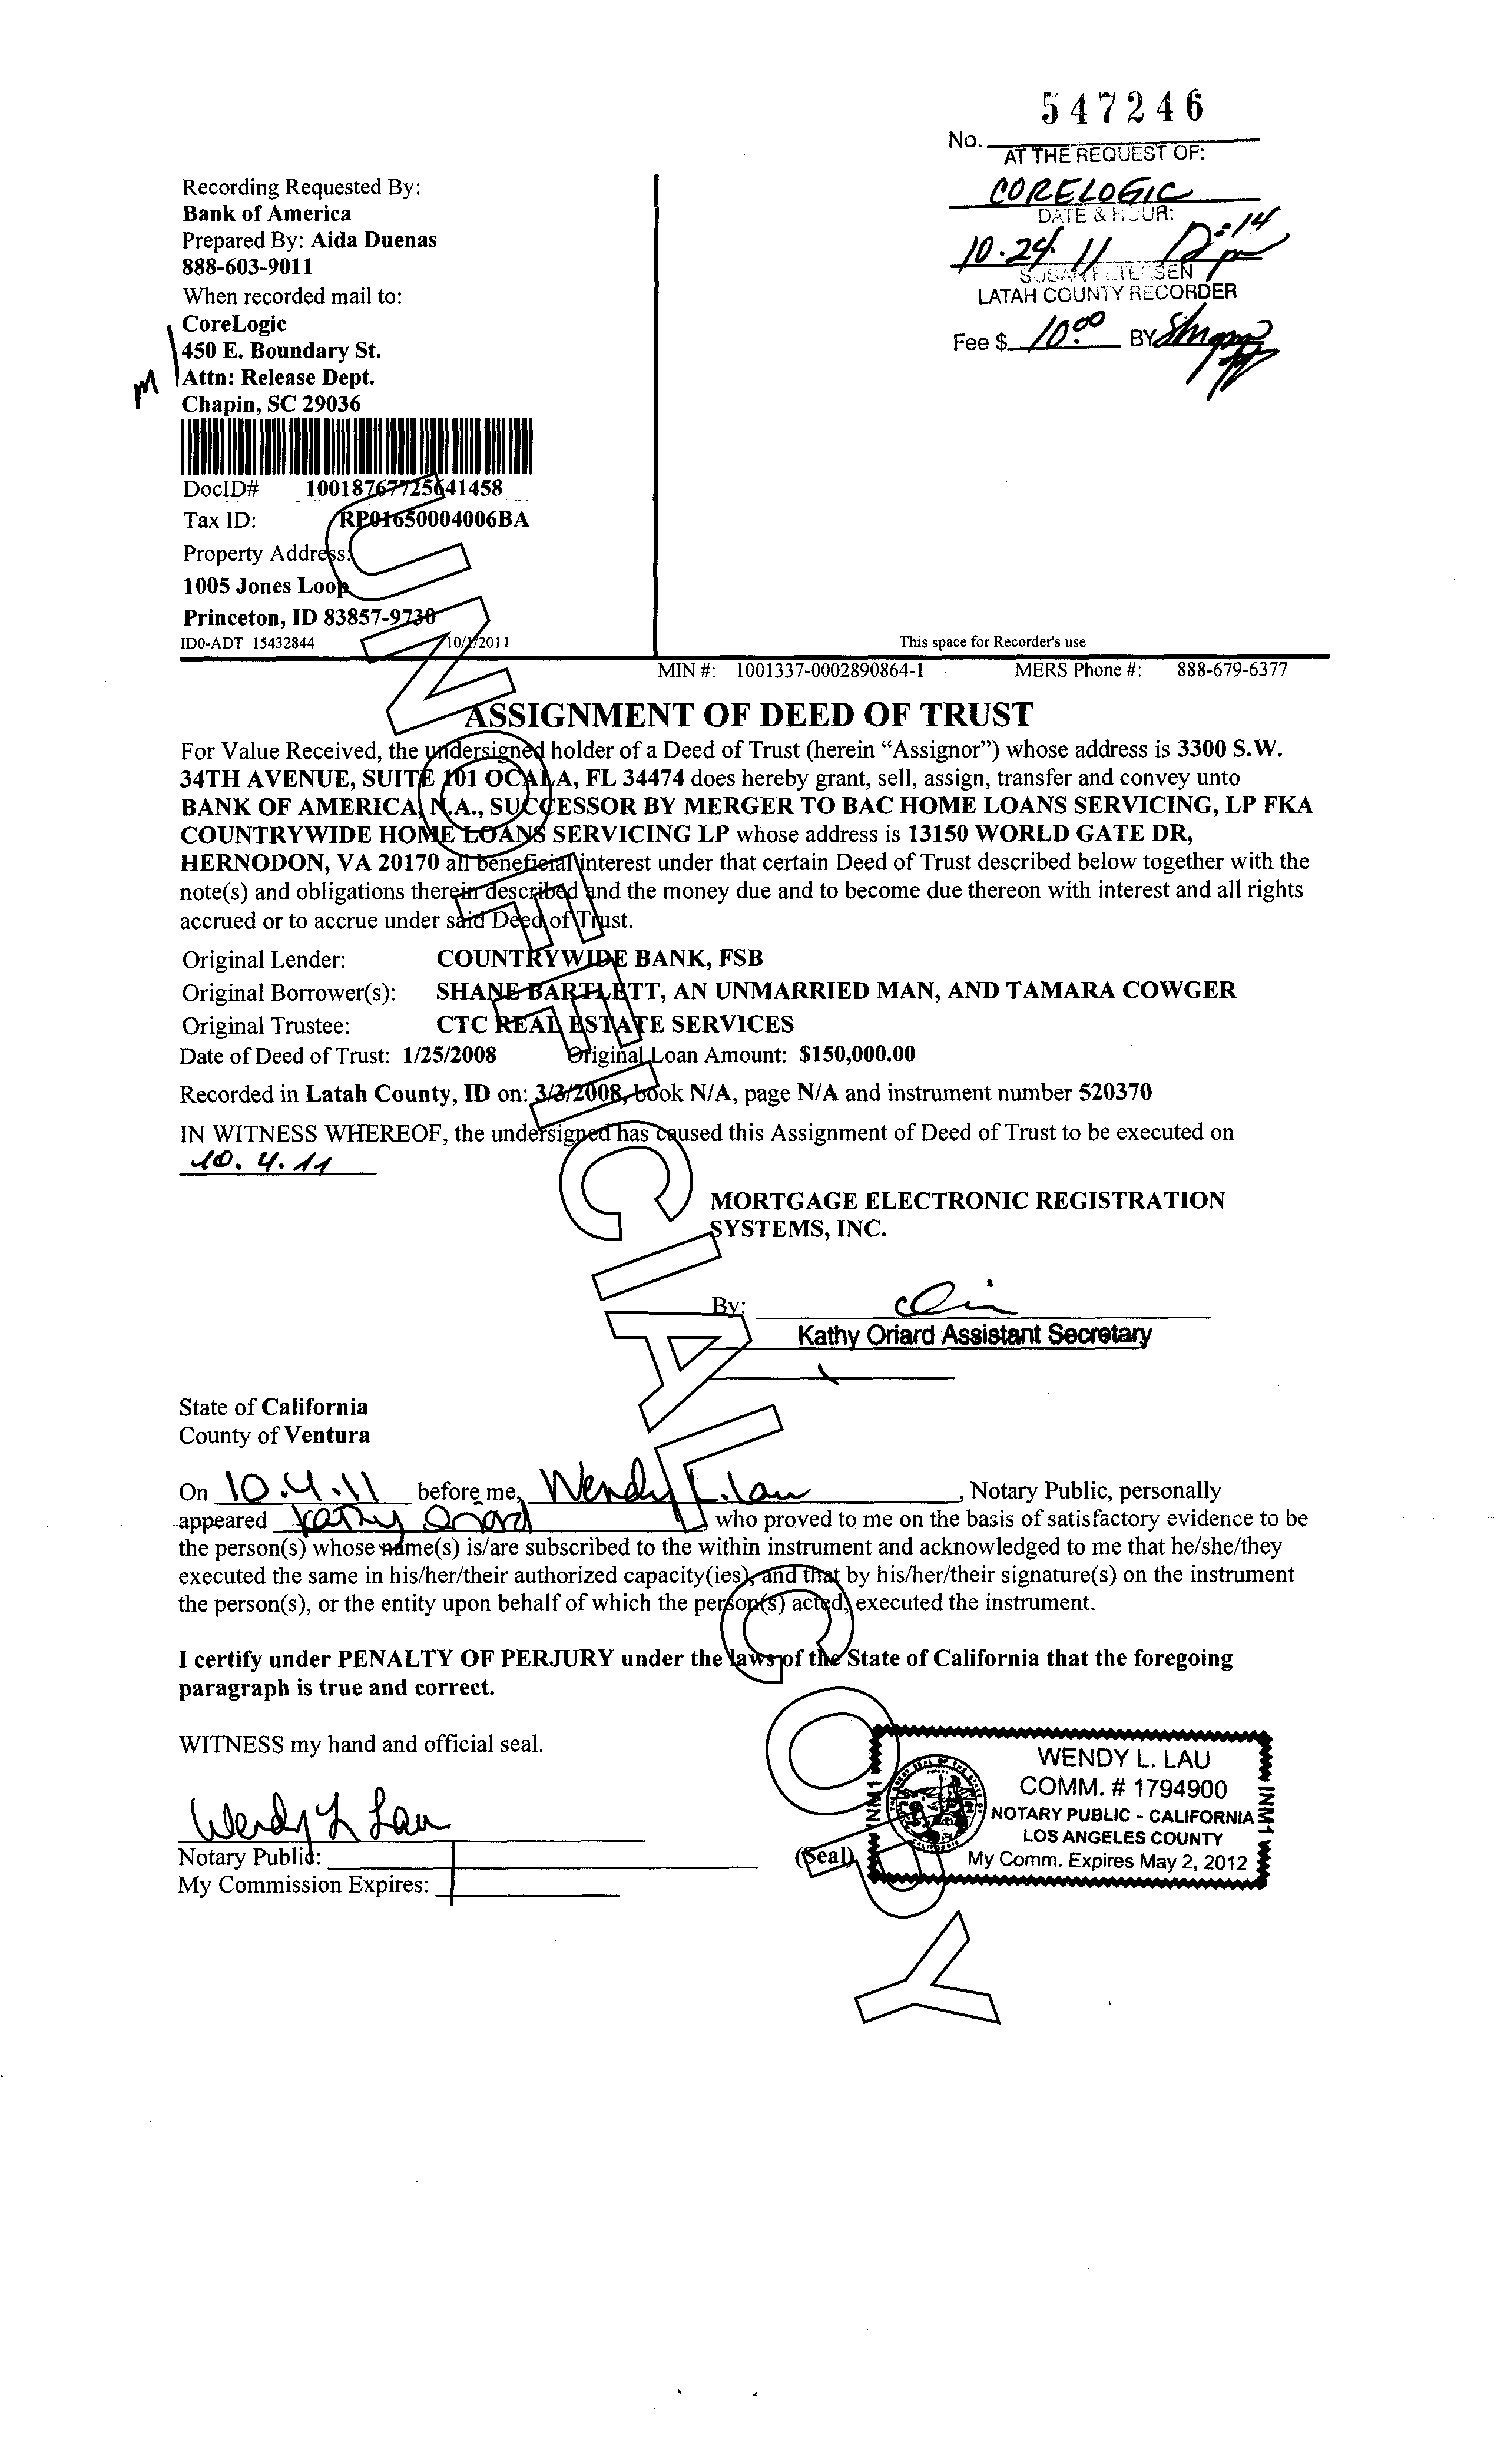 547246
No.
AT THE REQUEST OF:
CORELOGIC
DATE & HOUR:
10.24.11 12:14 pm
SUSAN PETERSEN
LATAH COUNTY RECORDER
Fee $ 10.00 BY
Recording Requested By:
Bank of America
Prepared By: Aida Duenas
888-603-9011
When recorded mail to:
CoreLogic
450 E. Boundary St.
Attn: Release Dept.
Chapin, SC 29036
M
DocID# 10018767725641458
Tax ID: RP01650004006BA
Property Address:
1005 Jones Loop
Princeton, ID 83857-9730
ID0-ADT 15432844 10/1/2011
This space for Recorder's use
MIN #: 1001337-0002890864-1 MERS Phone #: 888-679-6377
ASSIGNMENT OF DEED OF TRUST
For Value Received, the undersigned holder of a Deed of Trust (herein “Assignor”) whose address is 3300 S.W.
34TH AVENUE, SUITE 101 OCALA, FL 34474 does hereby grant, sell, assign, transfer and convey unto
BANK OF AMERICA, N.A., SUCCESSOR BY MERGER TO BAC HOME LOANS SERVICING, LP FKA
COUNTRYWIDE HOME LOANS SERVICING LP whose address is 13150 WORLD GATE DR,
HERNODON, VA 20170 all beneficial interest under that certain Deed of Trust described below together with the
note(s) and obligations therein described and the money due and to become due thereon with interest and all rights
accrued or to accrue under said Deed of Trust.
Original Lender: COUNTRYWIDE BANK, FSB
Original Borrower(s): SHANE BARTLETT, AN UNMARRIED MAN, AND TAMARA COWGER
Original Trustee: CTC REAL ESTATE SERVICES
Date of Deed of Trust: 1/25/2008 Original Loan Amount: $150,000.00
Recorded in Latah County, ID on: 3/3/2008, book N/A, page N/A and instrument number 520370
IN WITNESS WHEREOF, the undersigned has caused this Assignment of Deed of Trust to be executed on
10.4.11
MORTGAGE ELECTRONIC REGISTRATION
SYSTEMS, INC.
By:
Kathy Oriard Assistant Secretary
State of California
County of Ventura
On 10.4.11 before me, Wendy L. Lau, Notary Public, personally
appeared Kathy Oriard who proved to me on the basis of satisfactory evidence to be
the person(s) whose name(s) is/are subscribed to the within instrument and acknowledged to me that he/she/they
executed the same in his/her/their authorized capacity(ies), and that by his/her/their signature(s) on the instrument
the person(s), or the entity upon behalf of which the person(s) acted, executed the instrument.
I certify under PENALTY OF PERJURY under the laws of the State of California that the foregoing
paragraph is true and correct.
WITNESS my hand and official seal.
Wendy L Lau
Notary Public:
My Commission Expires:
(Seal)
WENDY L. LAU
COMM. # 1794900
NOTARY PUBLIC - CALIFORNIA
LOS ANGELES COUNTY
My Comm. Expires May 2, 2012
INM1
INM1
UNOFFICIAL COPY